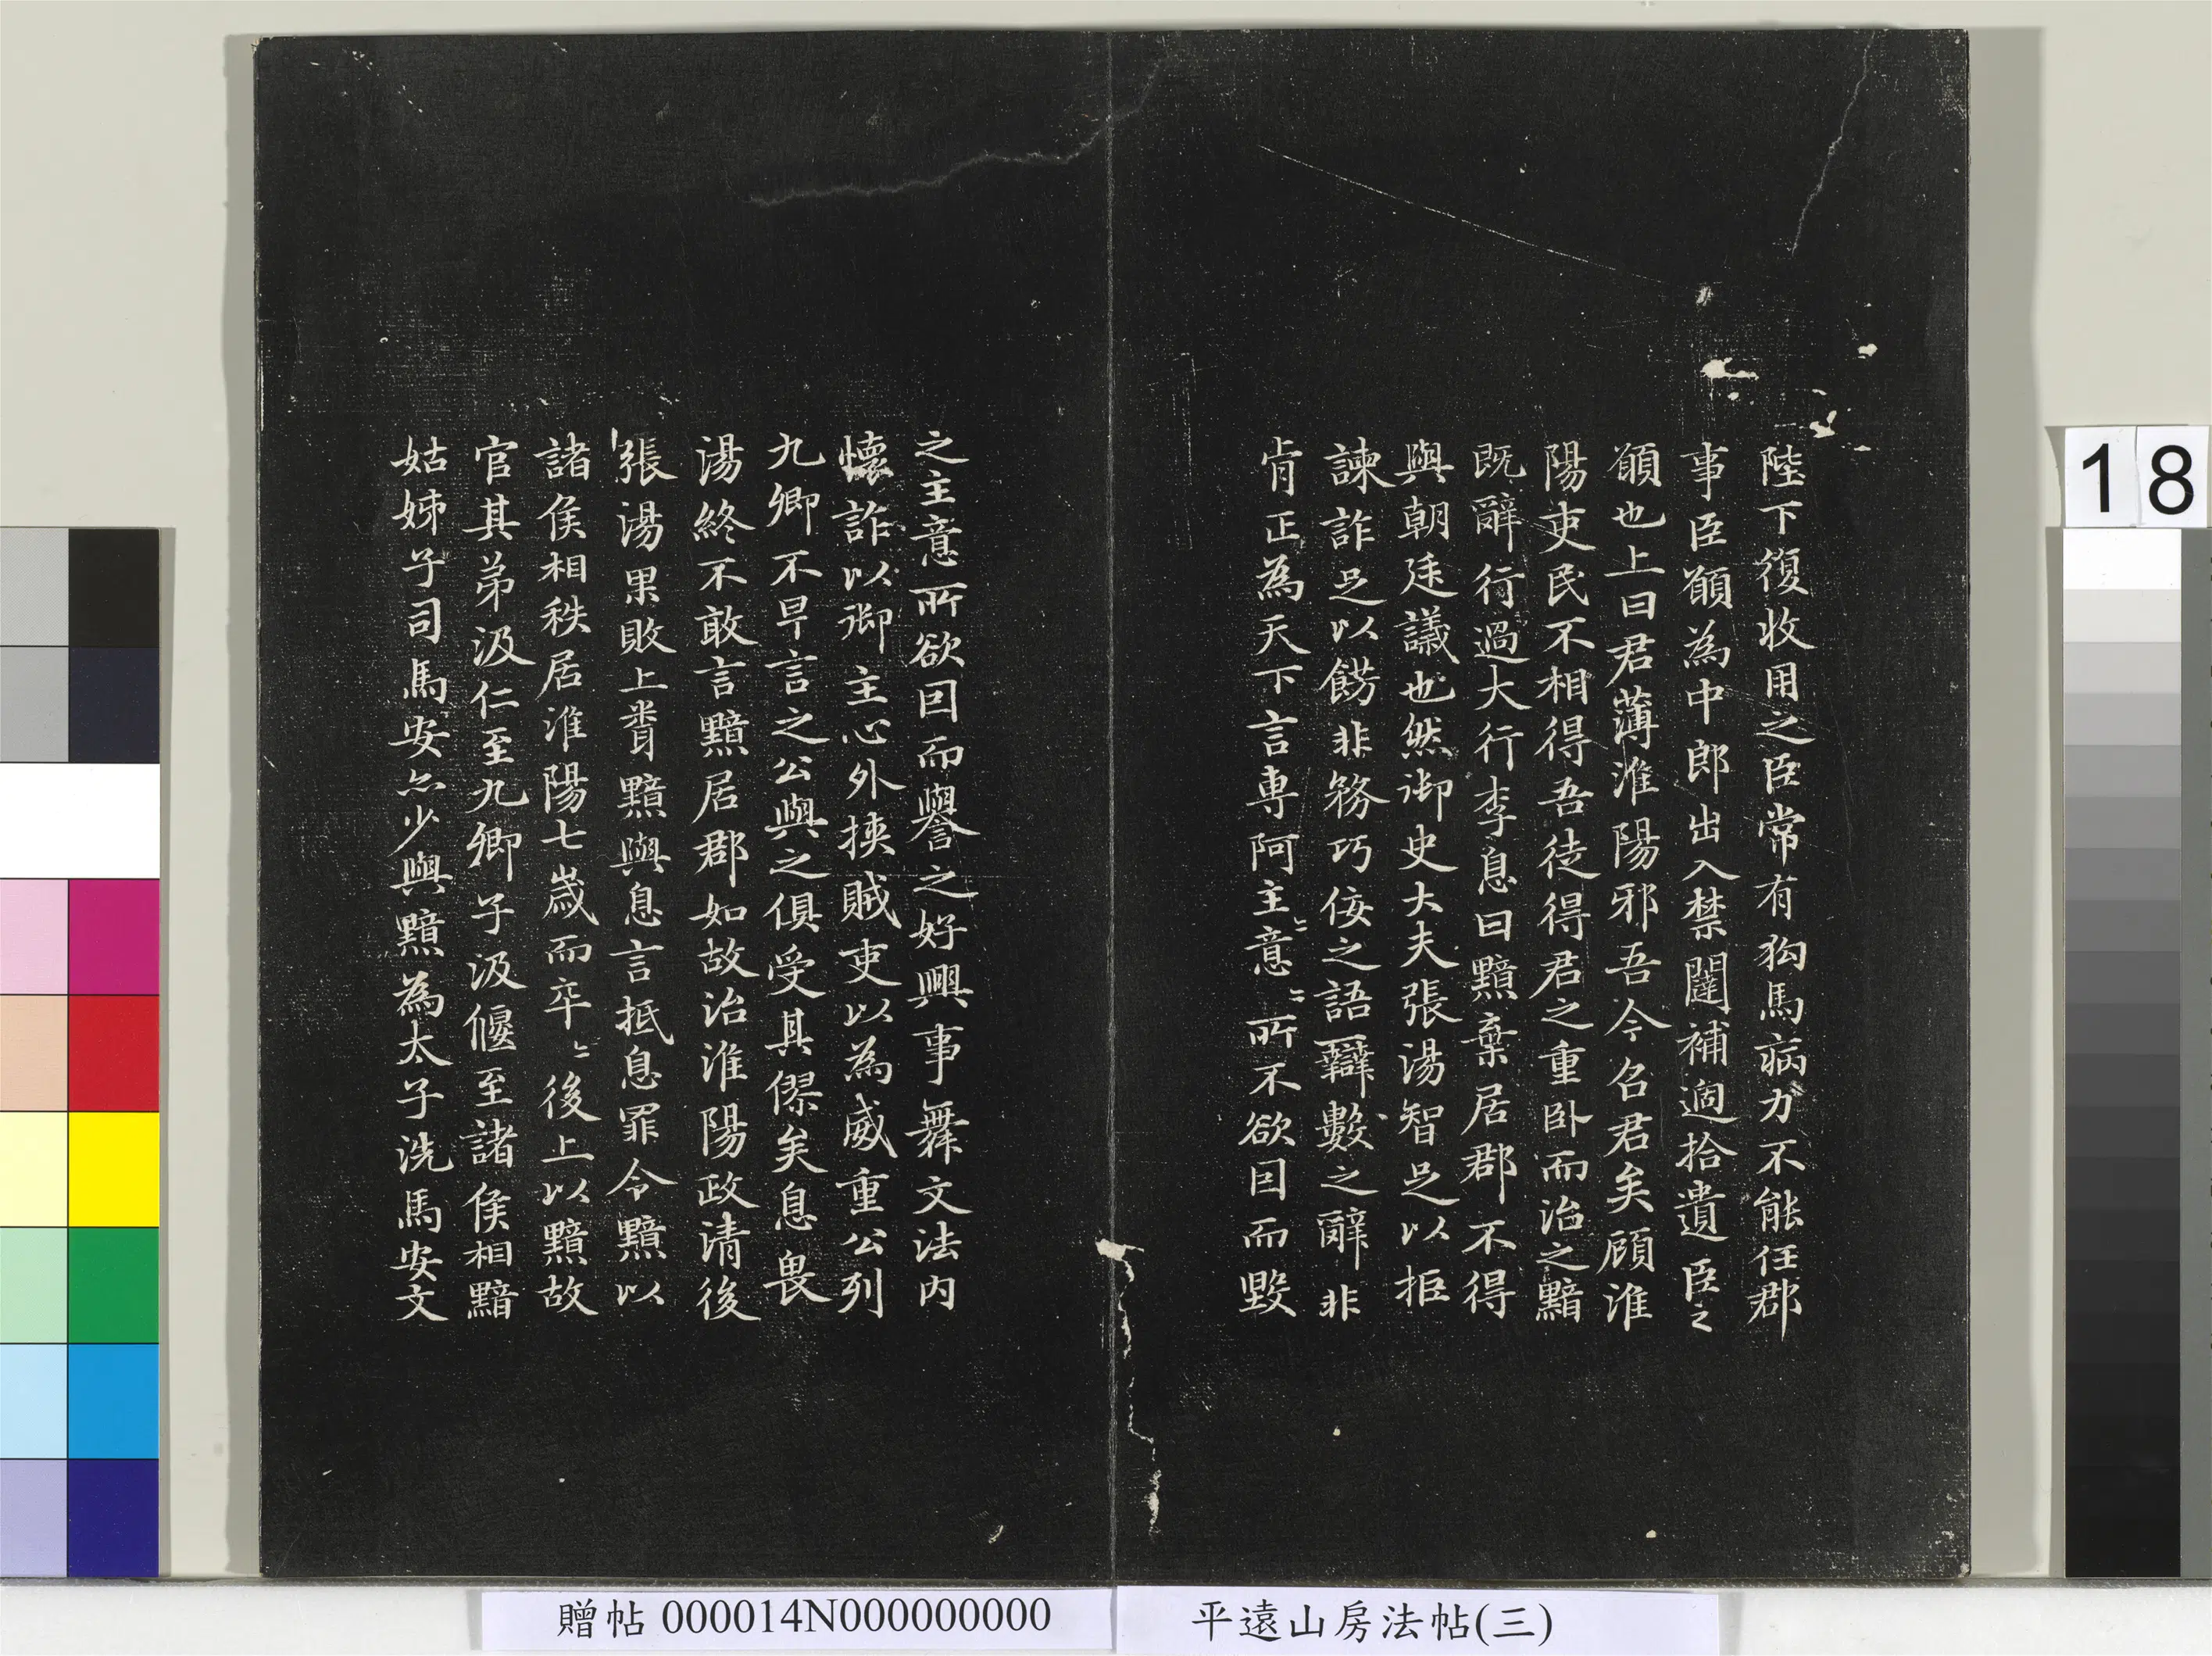 陛下復收用之臣常有狗馬病力不能任郡
事臣願為中郎出入禁闥補過拾遺臣之
願也上曰君薄淮陽邪吾今召君矣顧淮
陽吏民不相得吾徒得君之重臥而治之黯
既辭行過大行李息曰黯棄居郡不得
與朝廷議也然御史大夫張湯智足以拒
諫詐足以餝非務巧佞之語辯數之辭非
肯正為天下言專阿主〻意〻所不欲因而毀
之主意所欲因而譽之好興事舞文法內
懷詐以御主心外挾賊吏以為威重公列
九卿不早言之公與之俱受其僇矣息畏
湯終不敢言黯居郡如故治淮陽政清後
張湯果敗上聞黯與息言抵息罪令黯以
諸侯相秩居淮陽七歲而卒〻後上以黯故
官其弟汲仁至九卿子汲偃至諸侯相黯
姑姊子司馬安亦少與黯為太子洗馬安文
贈帖 000014N000000000
平遠山房法帖(三)
18